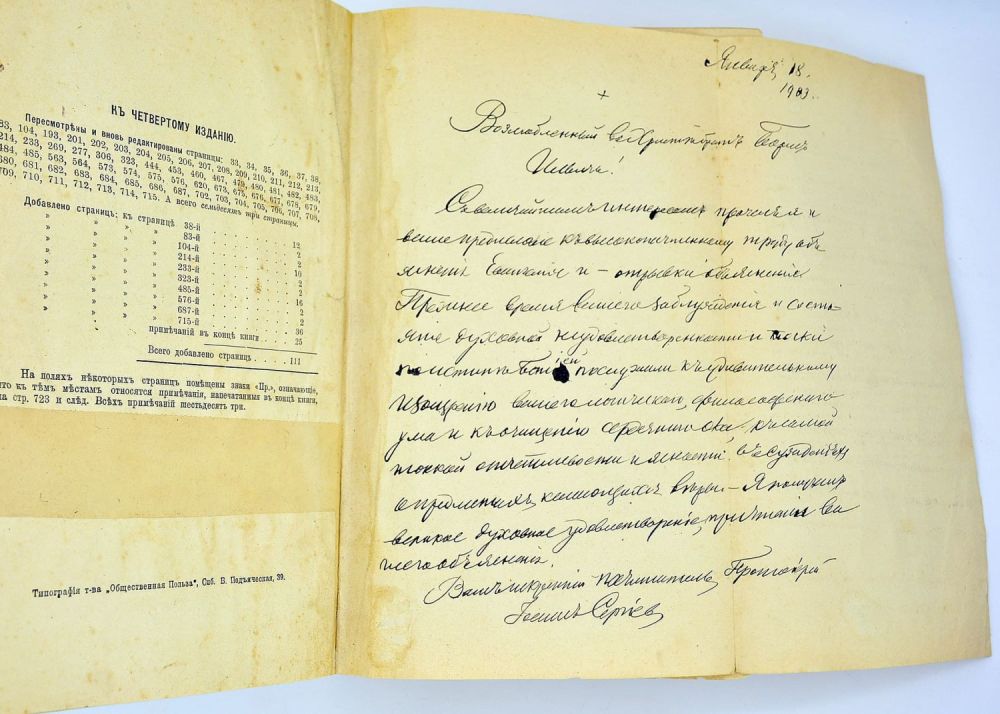 КЪ ЧЕТВЕРТОМУ ИЗДАНІЮ.
Пересмотрѣны и вновь редактированы страницы: 33, 34, 35, 36, 37, 38,
83, 104, 193, 201, 202, 203, 204, 205, 206, 207, 208, 209, 210, 211, 212, 213,
214, 233, 269, 277, 306, 323, 444, 453, 460, 467, 479, 480, 481, 482, 483,
484, 485, 563, 564, 573, 574, 575, 576, 620, 673, 675, 676, 677, 678, 679,
680, 681, 682, 683, 684, 685, 686, 687, 702, 703, 704, 705, 706, 707, 708,
709, 710, 711, 712, 713, 714, 715. А всего семьдесятъ три страницы.
Добавлено страницъ: къ страницѣ 38-й . . . . . 12
» » » 83-й . . . . . 2
» » » 104-й . . . . . 2
» » » 214-й . . . . . 2
» » » 233-й . . . . . 10
» » » 323-й . . . . . 2
» » » 485-й . . . . . 2
» » » 576-й . . . . . 16
» » » 687-й . . . . . 2
» » » 715-й . . . . . 36
примѣчаній въ концѣ книги . . 25
Всего добавлено страницъ . . . . 111
На поляхъ нѣкоторыхъ страницъ помѣщены знаки «Пр.», означающіе,
что къ тѣмъ мѣстамъ относятся примѣчанія, напечатанныя въ концѣ книги,
на стр. 723 и слѣд. Всѣхъ примѣчаній шестьдесятъ три.
Типографія т-ва „Общественная Польза", Спб. Б. Подъяческая, 39.
Января 18.
1903.
Возлюбленный во Христѣ братъ
Съ величайшимъ интересомъ прочелъ я
ваше предисловіе къ высокопочтенному труду объ
Евангелія и – отрывки объясненія
Прежнее время вашего заблужденія и состо-
яніе духовной неудовлетворенности и тоски
послужили къ удивительному
изощренію вашего логическаго, философскаго
ума и къ очищенію сердечнаго ока, къ самой
тонкой отчетливости и ясности въ сужденіяхъ
о предметахъ, касающихся вѣры. – Я получилъ
великое духовное удовлетвореніе при чтеніи ва-
шего объясненія.
Вашъ искренній почитатель, Протоіерей
Іоаннъ Сергіевъ